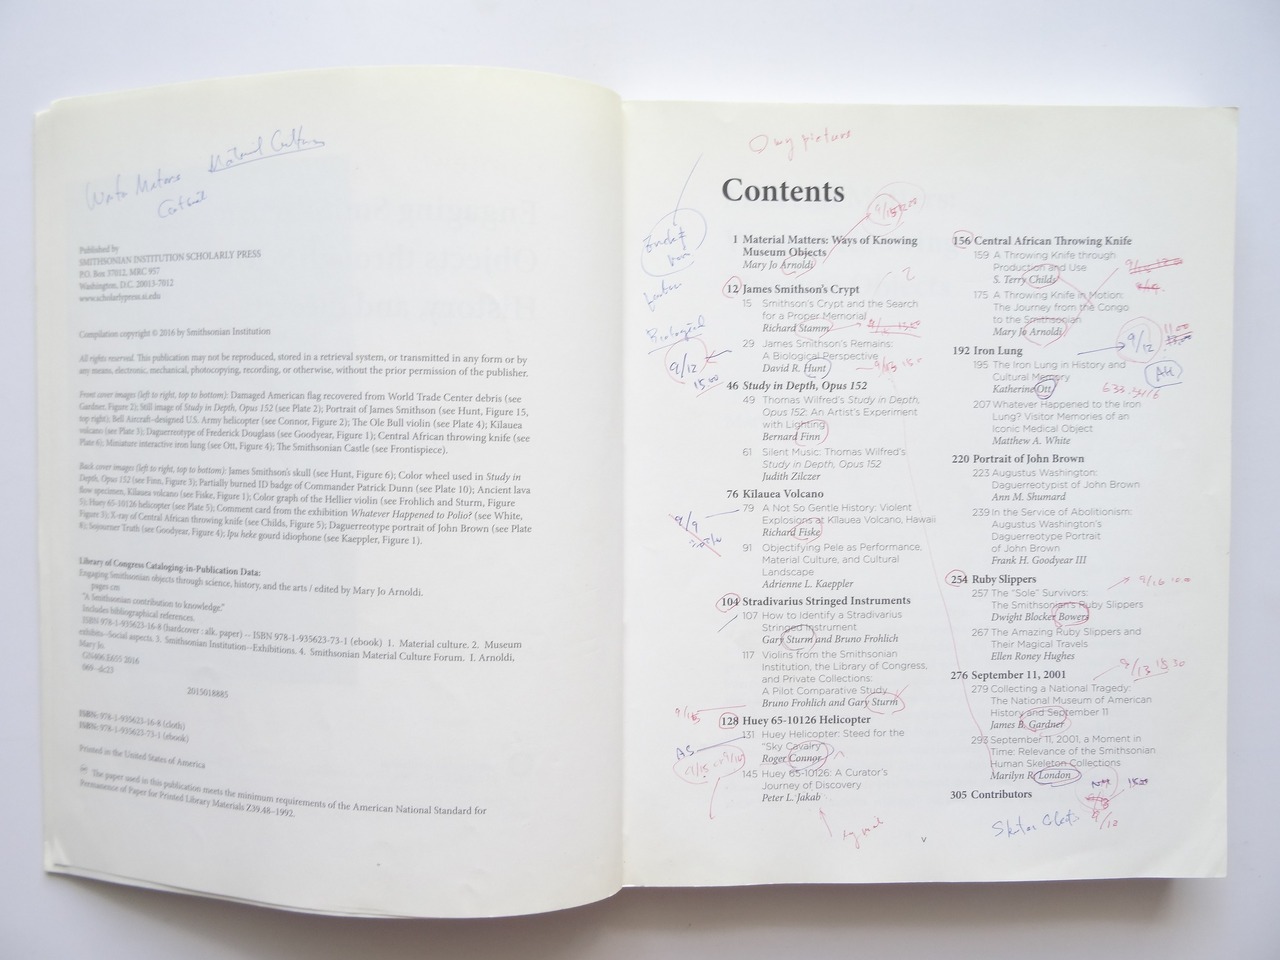 Material Culture
Published by
SMITHSONIAN INSTITUTION SCHOLARLY PRESS
P.O. Box 37012, MRC 957
Washington, D.C. 20013-7012
www.scholarlypress.si.edu
Compilation copyright © 2016 by Smithsonian Institution
All rights reserved. This publication may not be reproduced, stored in a retrieval system, or transmitted in any form or by
any means, electronic, mechanical, photocopying, recording, or otherwise, without the prior permission of the publisher.
Front cover images (left to right, top to bottom): Damaged American flag recovered from World Trade Center debris (see
Gardner, Figure 2); Still image of Study in Depth, Opus 152 (see Plate 2); Portrait of James Smithson (see Hunt, Figure 15,
top right); Bell Aircraft-designed U.S. Army helicopter (see Connor, Figure 2); The Ole Bull violin (see Plate 4); Kilauea
volcano (see Plate 3); Daguerreotype of Frederick Douglass (see Goodyear, Figure 1); Central African throwing knife (see
Plate 6); Miniature interactive iron lung (see Ott, Figure 4); The Smithsonian Castle (see Frontispiece).
Back cover images (left to right, top to bottom): James Smithson's skull (see Hunt, Figure 6); Color wheel used in Study in
Depth, Opus 152 (see Finn, Figure 3); Partially burned ID badge of Commander Patrick Dunn (see Plate 10); Ancient lava
flow specimen, Kilauea volcano (see Fiske, Figure 1); Color graph of the Hellier violin (see Frohlich and Sturm, Figure
5); Huey 65-10126 helicopter (see Plate 5); Comment card from the exhibition Whatever Happened to Polio? (see White,
Figure 3); X-ray of Central African throwing knife (see Childs, Figure 5); Daguerreotype portrait of John Brown (see Plate
8); Sojourner Truth (see Goodyear, Figure 4); Ipu heke gourd idiophone (see Kaeppler, Figure 1).
Library of Congress Cataloging-in-Publication Data:
Engaging Smithsonian objects through science, history, and the arts / edited by Mary Jo Arnoldi.
pages cm
"A Smithsonian contribution to knowledge."
Includes bibliographical references.
ISBN 978-1-935623-16-8 (hardcover : alk. paper) -- ISBN 978-1-935623-73-1 (ebook) 1. Material culture. 2. Museum
exhibits--Social aspects. 3. Smithsonian Institution--Exhibitions. 4. Smithsonian Material Culture Forum. I. Arnoldi,
Mary Jo.
GN406.E655 2016
069--dc23
2015018885
ISBN: 978-1-935623-16-8 (cloth)
ISBN: 978-1-935623-73-1 (ebook)
Printed in the United States of America
The paper used in this publication meets the minimum requirements of the American National Standard for
Permanence of Paper for Printed Library Materials Z39.48–1992.
Contents
1 Material Matters: Ways of Knowing
Museum Objects
Mary Jo Arnoldi
12 James Smithson's Crypt
15 Smithson's Crypt and the Search
for a Proper Memorial
Richard Stamm
Biological
29 James Smithson's Remains:
A Biological Perspective
9/12
David R. Hunt
15:00
46 Study in Depth, Opus 152
49 Thomas Wilfred's Study in Depth,
Opus 152: An Artist's Experiment
with Lighting
Bernard Finn
61 Silent Music: Thomas Wilfred's
Study in Depth, Opus 152
Judith Zilczer
76 Kilauea Volcano
79 A Not So Gentle History: Violent
Explosions at Kīlauea Volcano, Hawaii
9/9
Richard Fiske
91 Objectifying Pele as Performance,
Material Culture, and Cultural
Landscape
Adrienne L. Kaeppler
104 Stradivarius Stringed Instruments
107 How to Identify a Stradivarius
Stringed Instrument
Gary Sturm and Bruno Frohlich
117 Violins from the Smithsonian
Institution, the Library of Congress,
and Private Collections:
A Pilot Comparative Study
Bruno Frohlich and Gary Sturm
128 Huey 65-10126 Helicopter
131 Huey Helicopter: Steed for the
"Sky Cavalry"
Roger Connor
145 Huey 65-10126: A Curator's
Journey of Discovery
Peter L. Jakab
156 Central African Throwing Knife
159 A Throwing Knife through
Production and Use
S. Terry Childs
175 A Throwing Knife in Motion:
The Journey from the Congo
to the Smithsonian
Mary Jo Arnoldi
9/12
192 Iron Lung
195 The Iron Lung in History and
Cultural Memory
Katherine Ott
207 Whatever Happened to the Iron
Lung? Visitor Memories of an
Iconic Medical Object
Matthew A. White
220 Portrait of John Brown
223 Augustus Washington:
Daguerreotypist of John Brown
Ann M. Shumard
239 In the Service of Abolitionism:
Augustus Washington's
Daguerreotype Portrait
of John Brown
Frank H. Goodyear III
254 Ruby Slippers
257 The "Sole" Survivors:
The Smithsonian's Ruby Slippers
Dwight Blocker Bowers
267 The Amazing Ruby Slippers and
Their Magical Travels
Ellen Roney Hughes
276 September 11, 2001
279 Collecting a National Tragedy:
The National Museum of American
History and September 11
James B. Gardner
293 September 11, 2001, a Moment in
Time: Relevance of the Smithsonian
Human Skeleton Collections
Marilyn R. London
305 Contributors
9/12
v